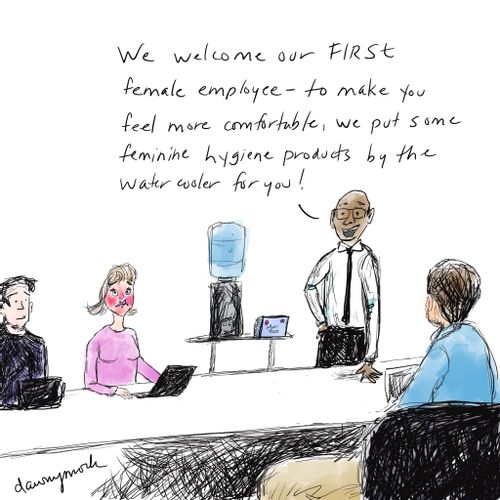 We welcome our FIRST
female employee - to make you
feel more comfortable, we put some
feminine hygiene products by the
water cooler for you!
dawnymock